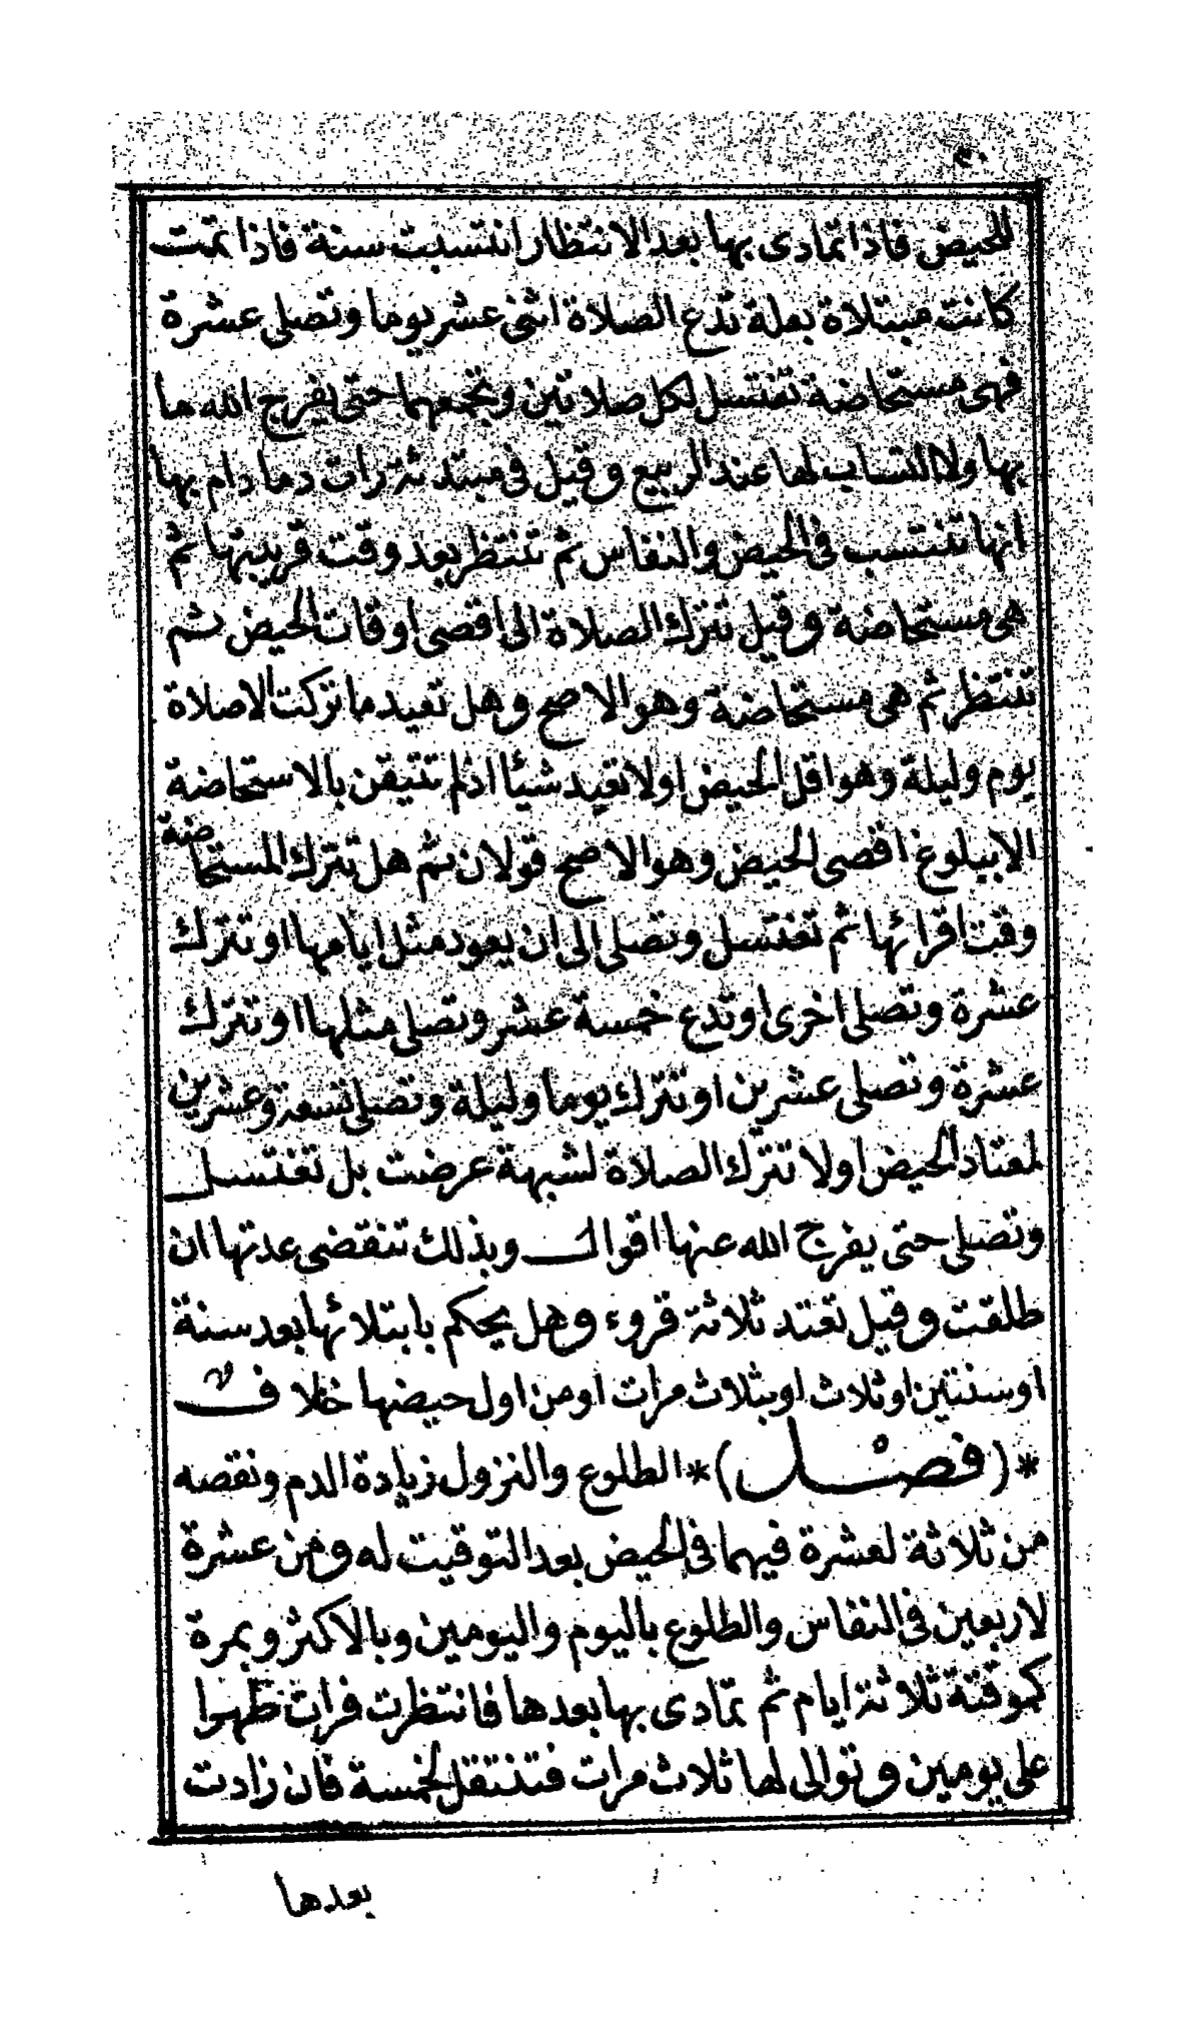 ٣٠
للحيض فاذا تمادى بها بعد الانتظار انتسبت سنة فاذا تمت
كانت مبتلاة بعلة تدع الصلاة اثنى عشر يوما وتصلى عشرة
فهى مستحاضة تغتسل لكل صلاتين وتجمعهما حتى يفرج الله ما
بها ولا انتساب لها عند الربيع وقيل فى مبتدئة رات دما دام بها
انها تنتسب فى الحيض والنفاس ثم تنتظر بعد وقت قريبتها ثم
هى مستحاضة وقيل تترك الصلاة الى اقصى اوقات الحيض ثم
تنتظر ثم هى مستحاضة وهو الاصح وهل تعيد ما تركت الا صلاة
يوم وليلة وهو اقل الحيض او لا تعيد شيئا اذ لم تتيقن بالاستحاضة
الا ببلوغ اقصى الحيض وهو الاصح قولان ثم هل تترك المستحاضة
وقت اقرائها ثم تغتسل وتصلى الى ان يعود مثل ايامها او تترك
عشرة وتصلى اخرى او تدع خمسة عشر وتصلى مثلها او تترك
عشرة وتصلى عشرين او تترك يوما وليلة وتصلى تسعة وعشرين
لمعتاد الحيض او لا تترك الصلاة لشبهة عرضت بل تغتسل
وتصلى حتى يفرج الله عنها اقوال وبذلك تنقضى عدتها ان
طلقت وقيل تعتد ثلاثة قروء وهل يحكم بابتلائها بعد سنة
او سنتين او ثلاث او بثلاث مرات او من اول حيضها خلاف
*(فصل)* الطلوع والنزول زيادة الدم ونقصه
من ثلاثة لعشرة فيهما فى الحيض بعد التوقيت له ومن عشرة
لاربعين فى النفاس والطلوع باليوم واليومين وبالاكثر وبمرة
كموقتة ثلاثة ايام ثم تمادى بها بعدها فانتظرت فرات طهرا
على يومين وتوالى لها ثلاث مرات فتنتقل لخمسة فان زادت
بعدها